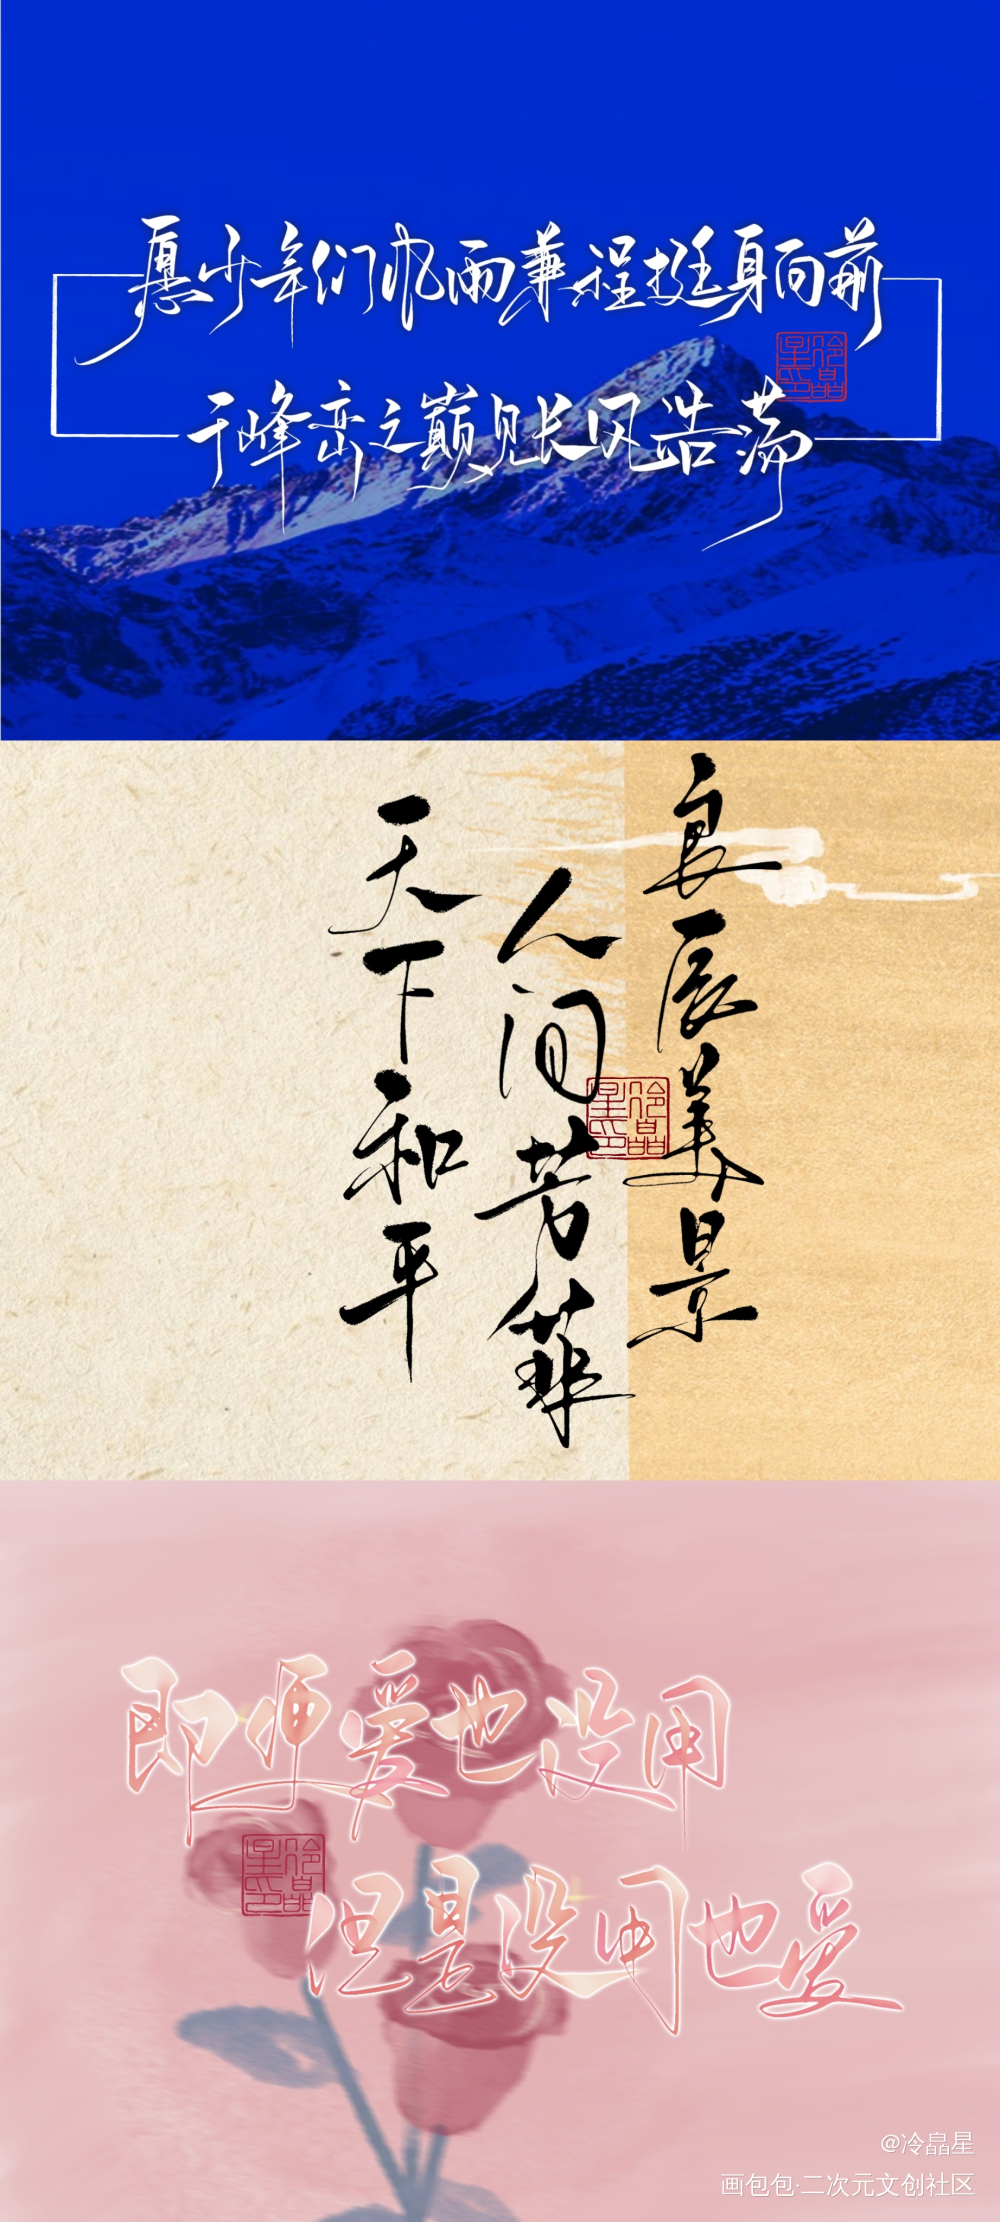 愿少年们风雨兼程挺身向前
于峰峦之巅见长风浩荡
冷晶星印
良辰美景
人间芳菲
天下和平
冷晶星印
即便爱也没用
但是没用也爱
冷晶星印
@冷皛星
画包包·二次元文创社区